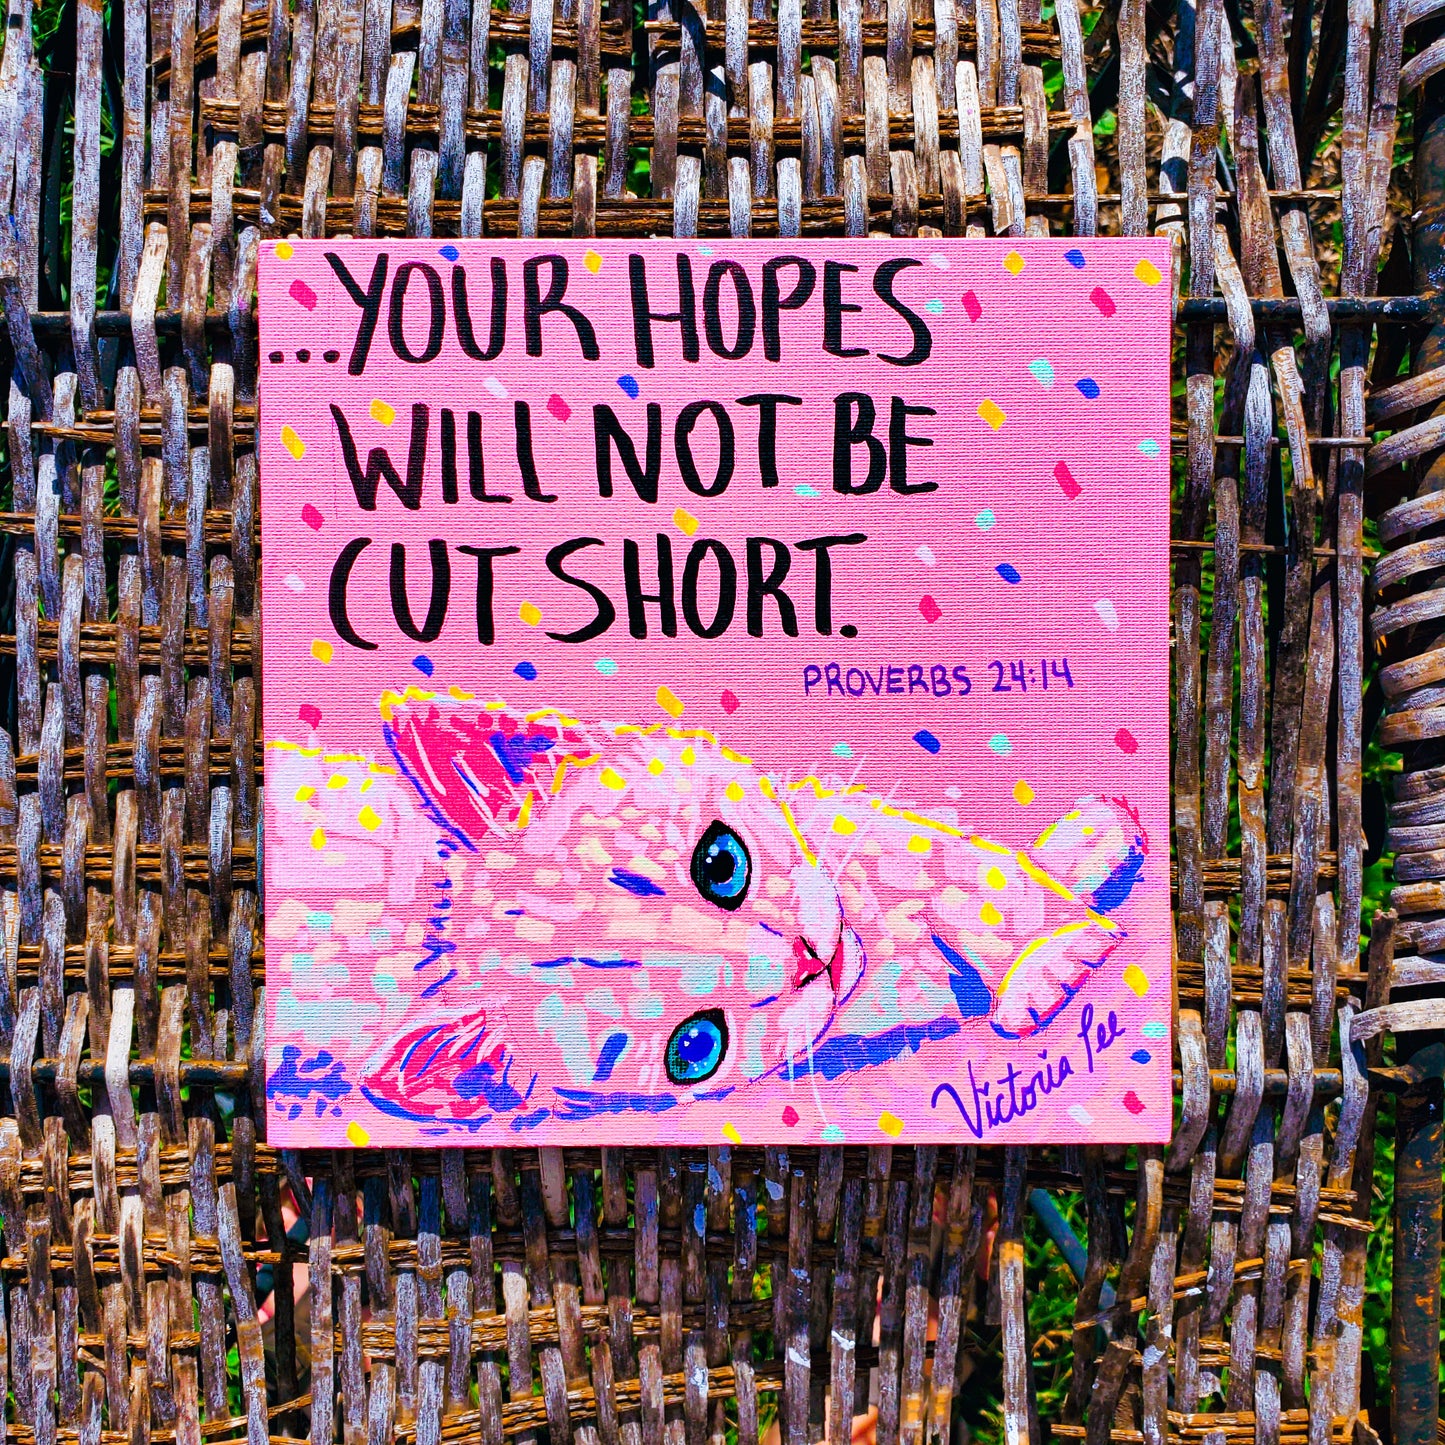 ...YOUR HOPES
WILL NOT BE
CUT SHORT.
PROVERBS 24:14
Victoria Lee